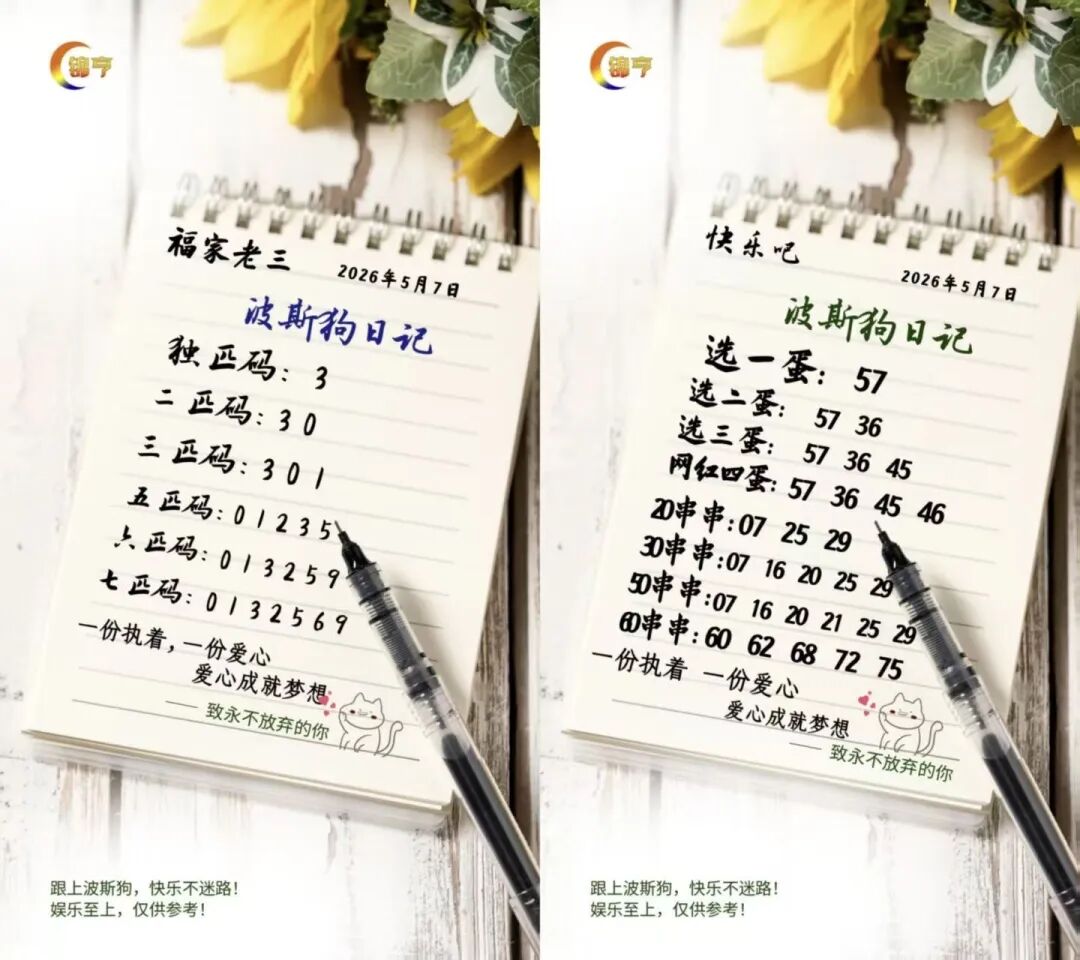 锦亨
福家老三
2026年5月7日
波斯狗日记
独匹码：3
二匹码：30
三匹码：301
五匹码：01235
六匹码：013259
七匹码：0132569
一份执着，一份爱心
爱心成就梦想
—— 致永不放弃的你
跟上波斯狗，快乐不迷路！
娱乐至上，仅供参考！
锦亨
快乐吧
2026年5月7日
波斯狗日记
选一蛋：57
选二蛋：57 36
选三蛋：57 36 45
网红四蛋：57 36 45 46
20串串：07 25 29
30串串：07 16 20 25 29
50串串：07 16 20 21 25 29
60串串：60 62 68 72 75
一份执着 一份爱心
爱心成就梦想
—— 致永不放弃的你
跟上波斯狗，快乐不迷路！
娱乐至上，仅供参考！